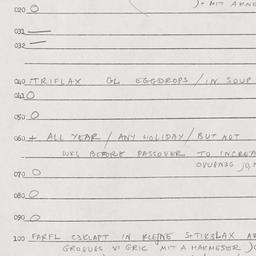 020 O
031 —
032 —
040 TRIFLAX GL EGGDROPS / IN SOUP
041 O
050 O
060 + ALL YEAR / ANY HOLIDAY / BUT NOT
WKS BEFORE PASSOVER TO INCREA
070 O
080 O
090 O
100 FARFL C3KLAPT IN KLEJNE STIK3LAX
GROBUES VI GRIC MIT A HAKMESER